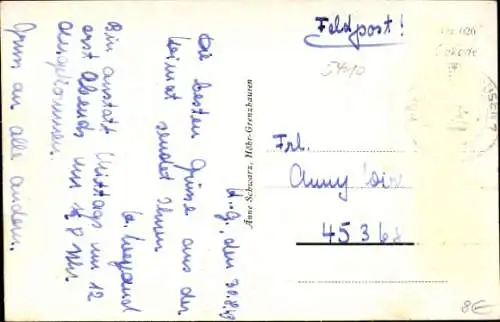 H.-G., den 30.8.40
Die besten Grüsse aus der
Heimat sendet Ihnen
Bin anstatt Mittags um 12
erst Abends um ½ 8 Uhr
angekommen.
Gruss an alle andern.
Anne Schwarz, Höhr-Grenzhausen
Feldpost!
5410
Frl.
Anny
45368
8€